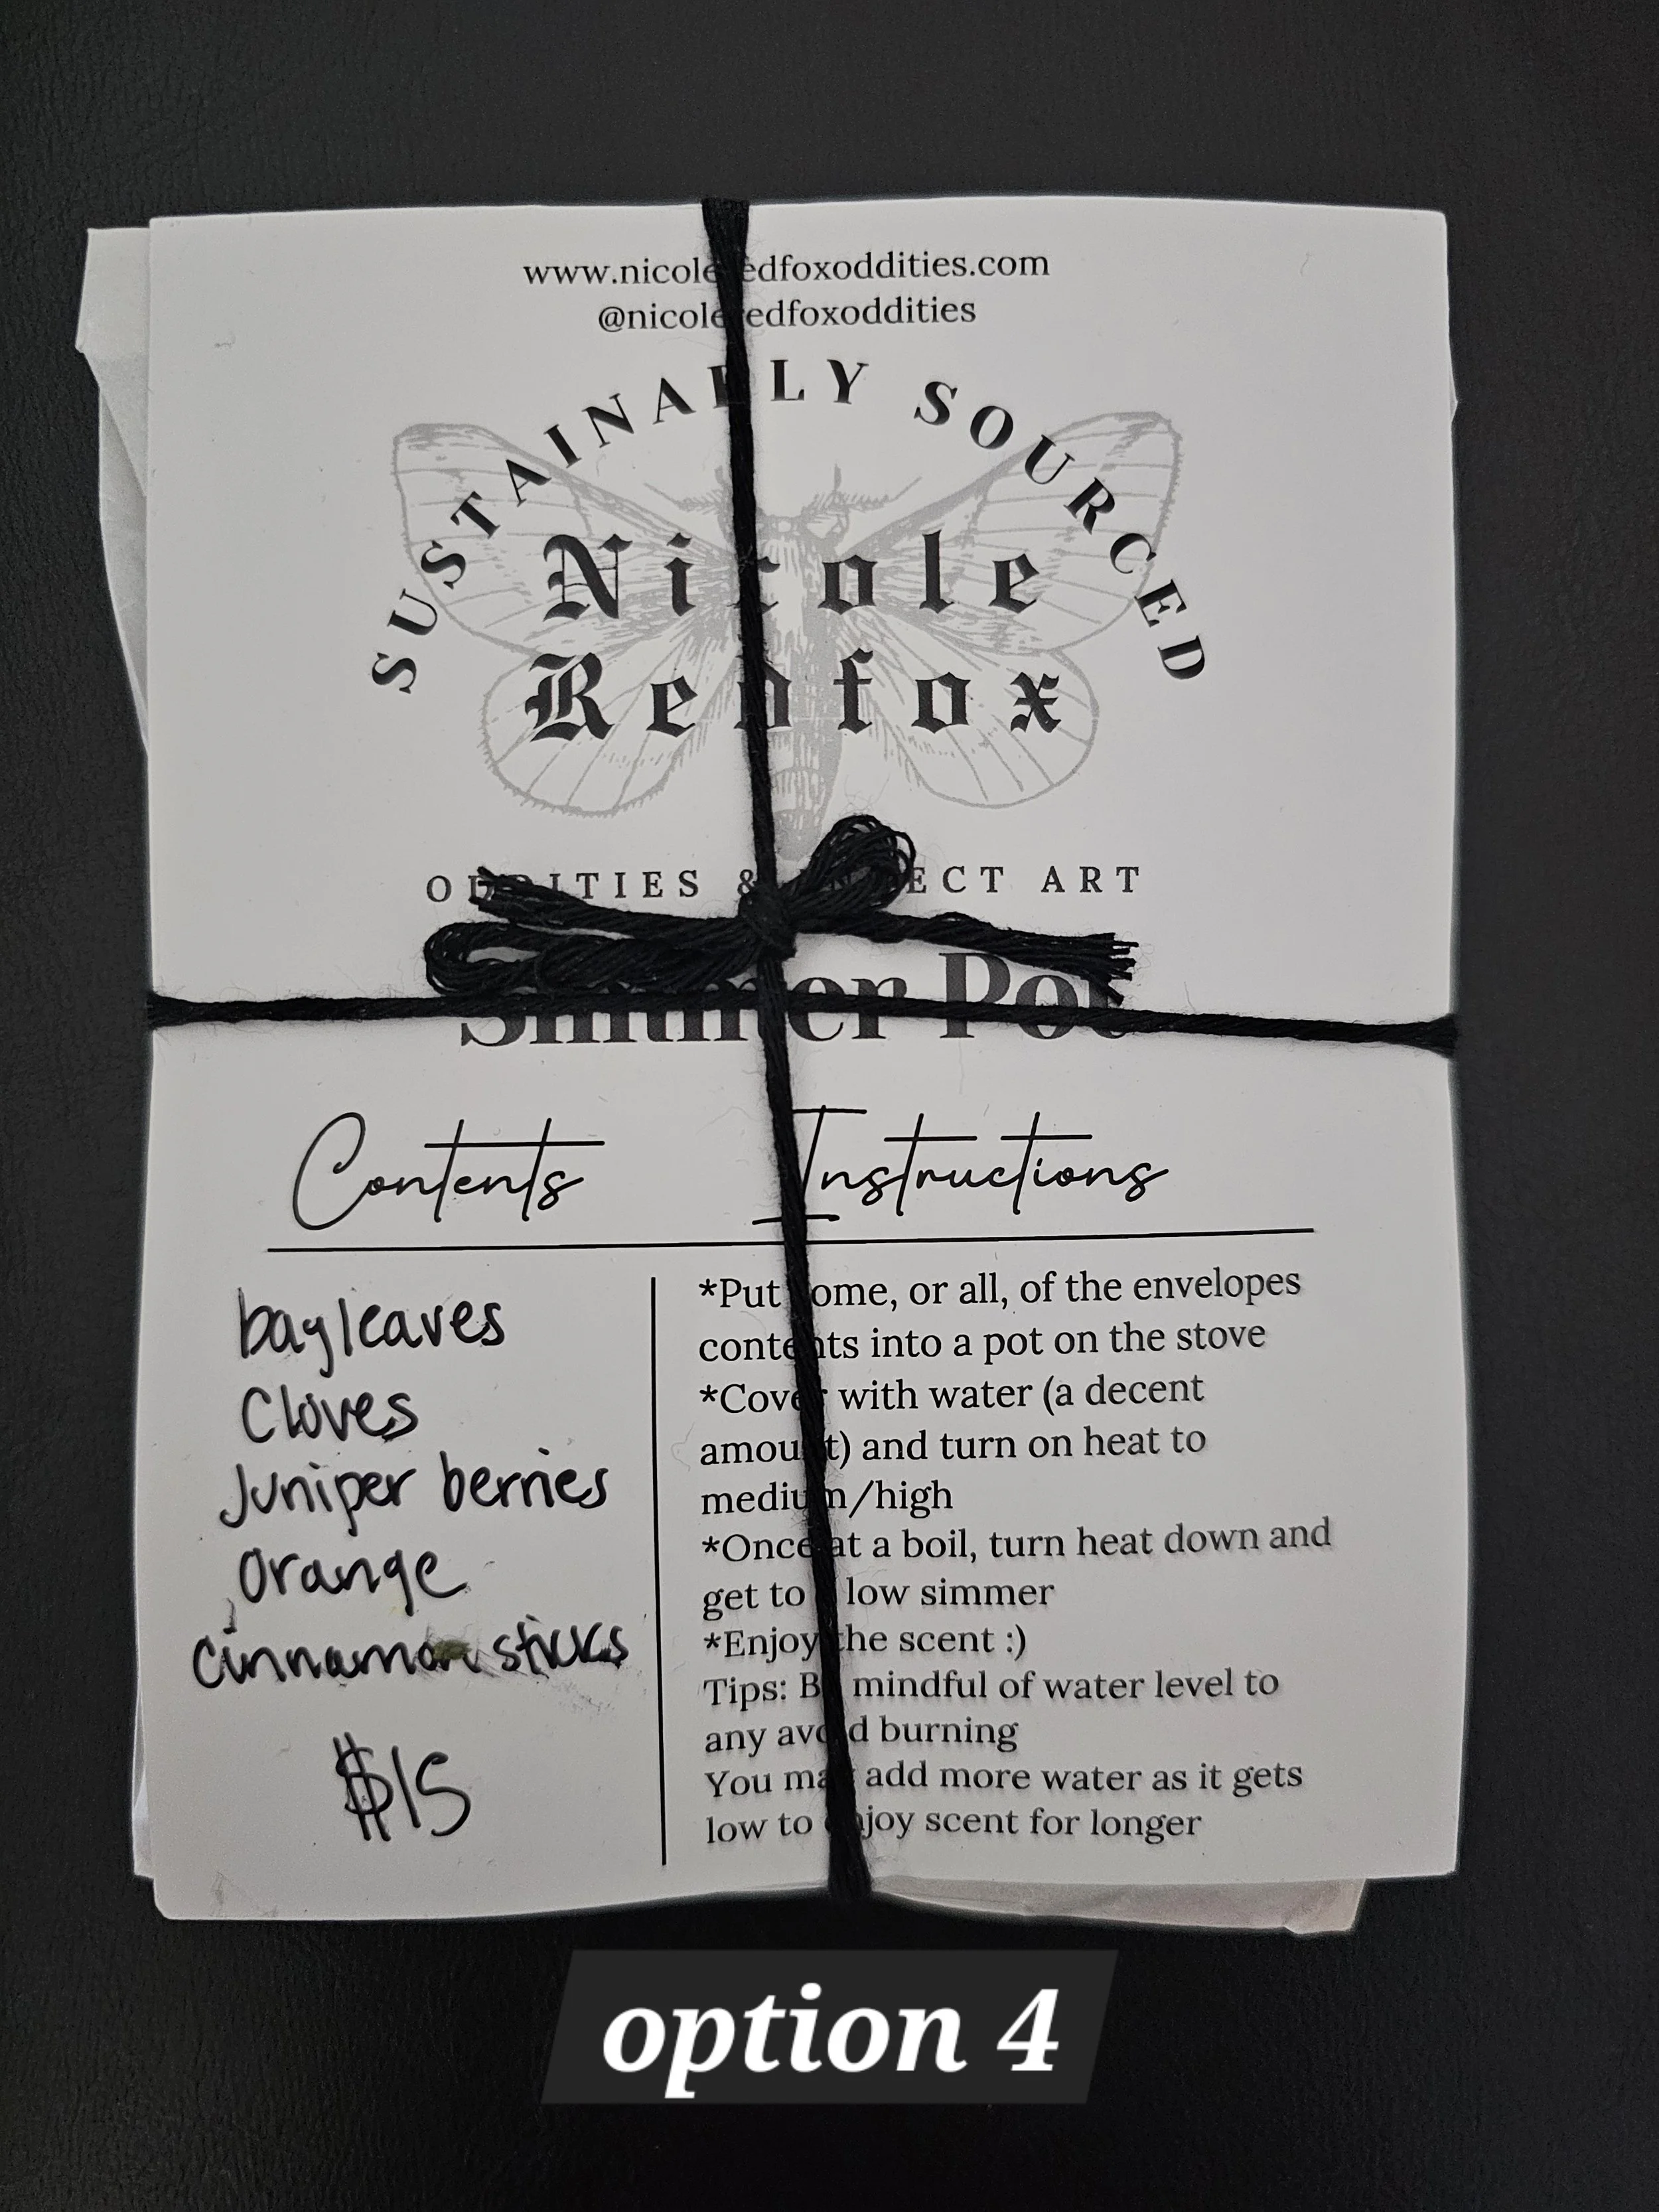 www.nicoleredfoxoddities.com
@nicoleredfoxoddities
SUSTAINABLY SOURCED
Nicole
Redfox
ODDITIES & INSECT ART
Simmer Pot
Contents
Instructions
bayleaves
Cloves
Juniper berries
Orange
cinnamon sticks
$15
*Put some, or all, of the envelopes
contents into a pot on the stove
*Cover with water (a decent
amount) and turn on heat to
medium/high
*Once at a boil, turn heat down and
get to a low simmer
*Enjoy the scent :)
Tips: Be mindful of water level to
any avoid burning
You may add more water as it gets
low to enjoy scent for longer
option 4